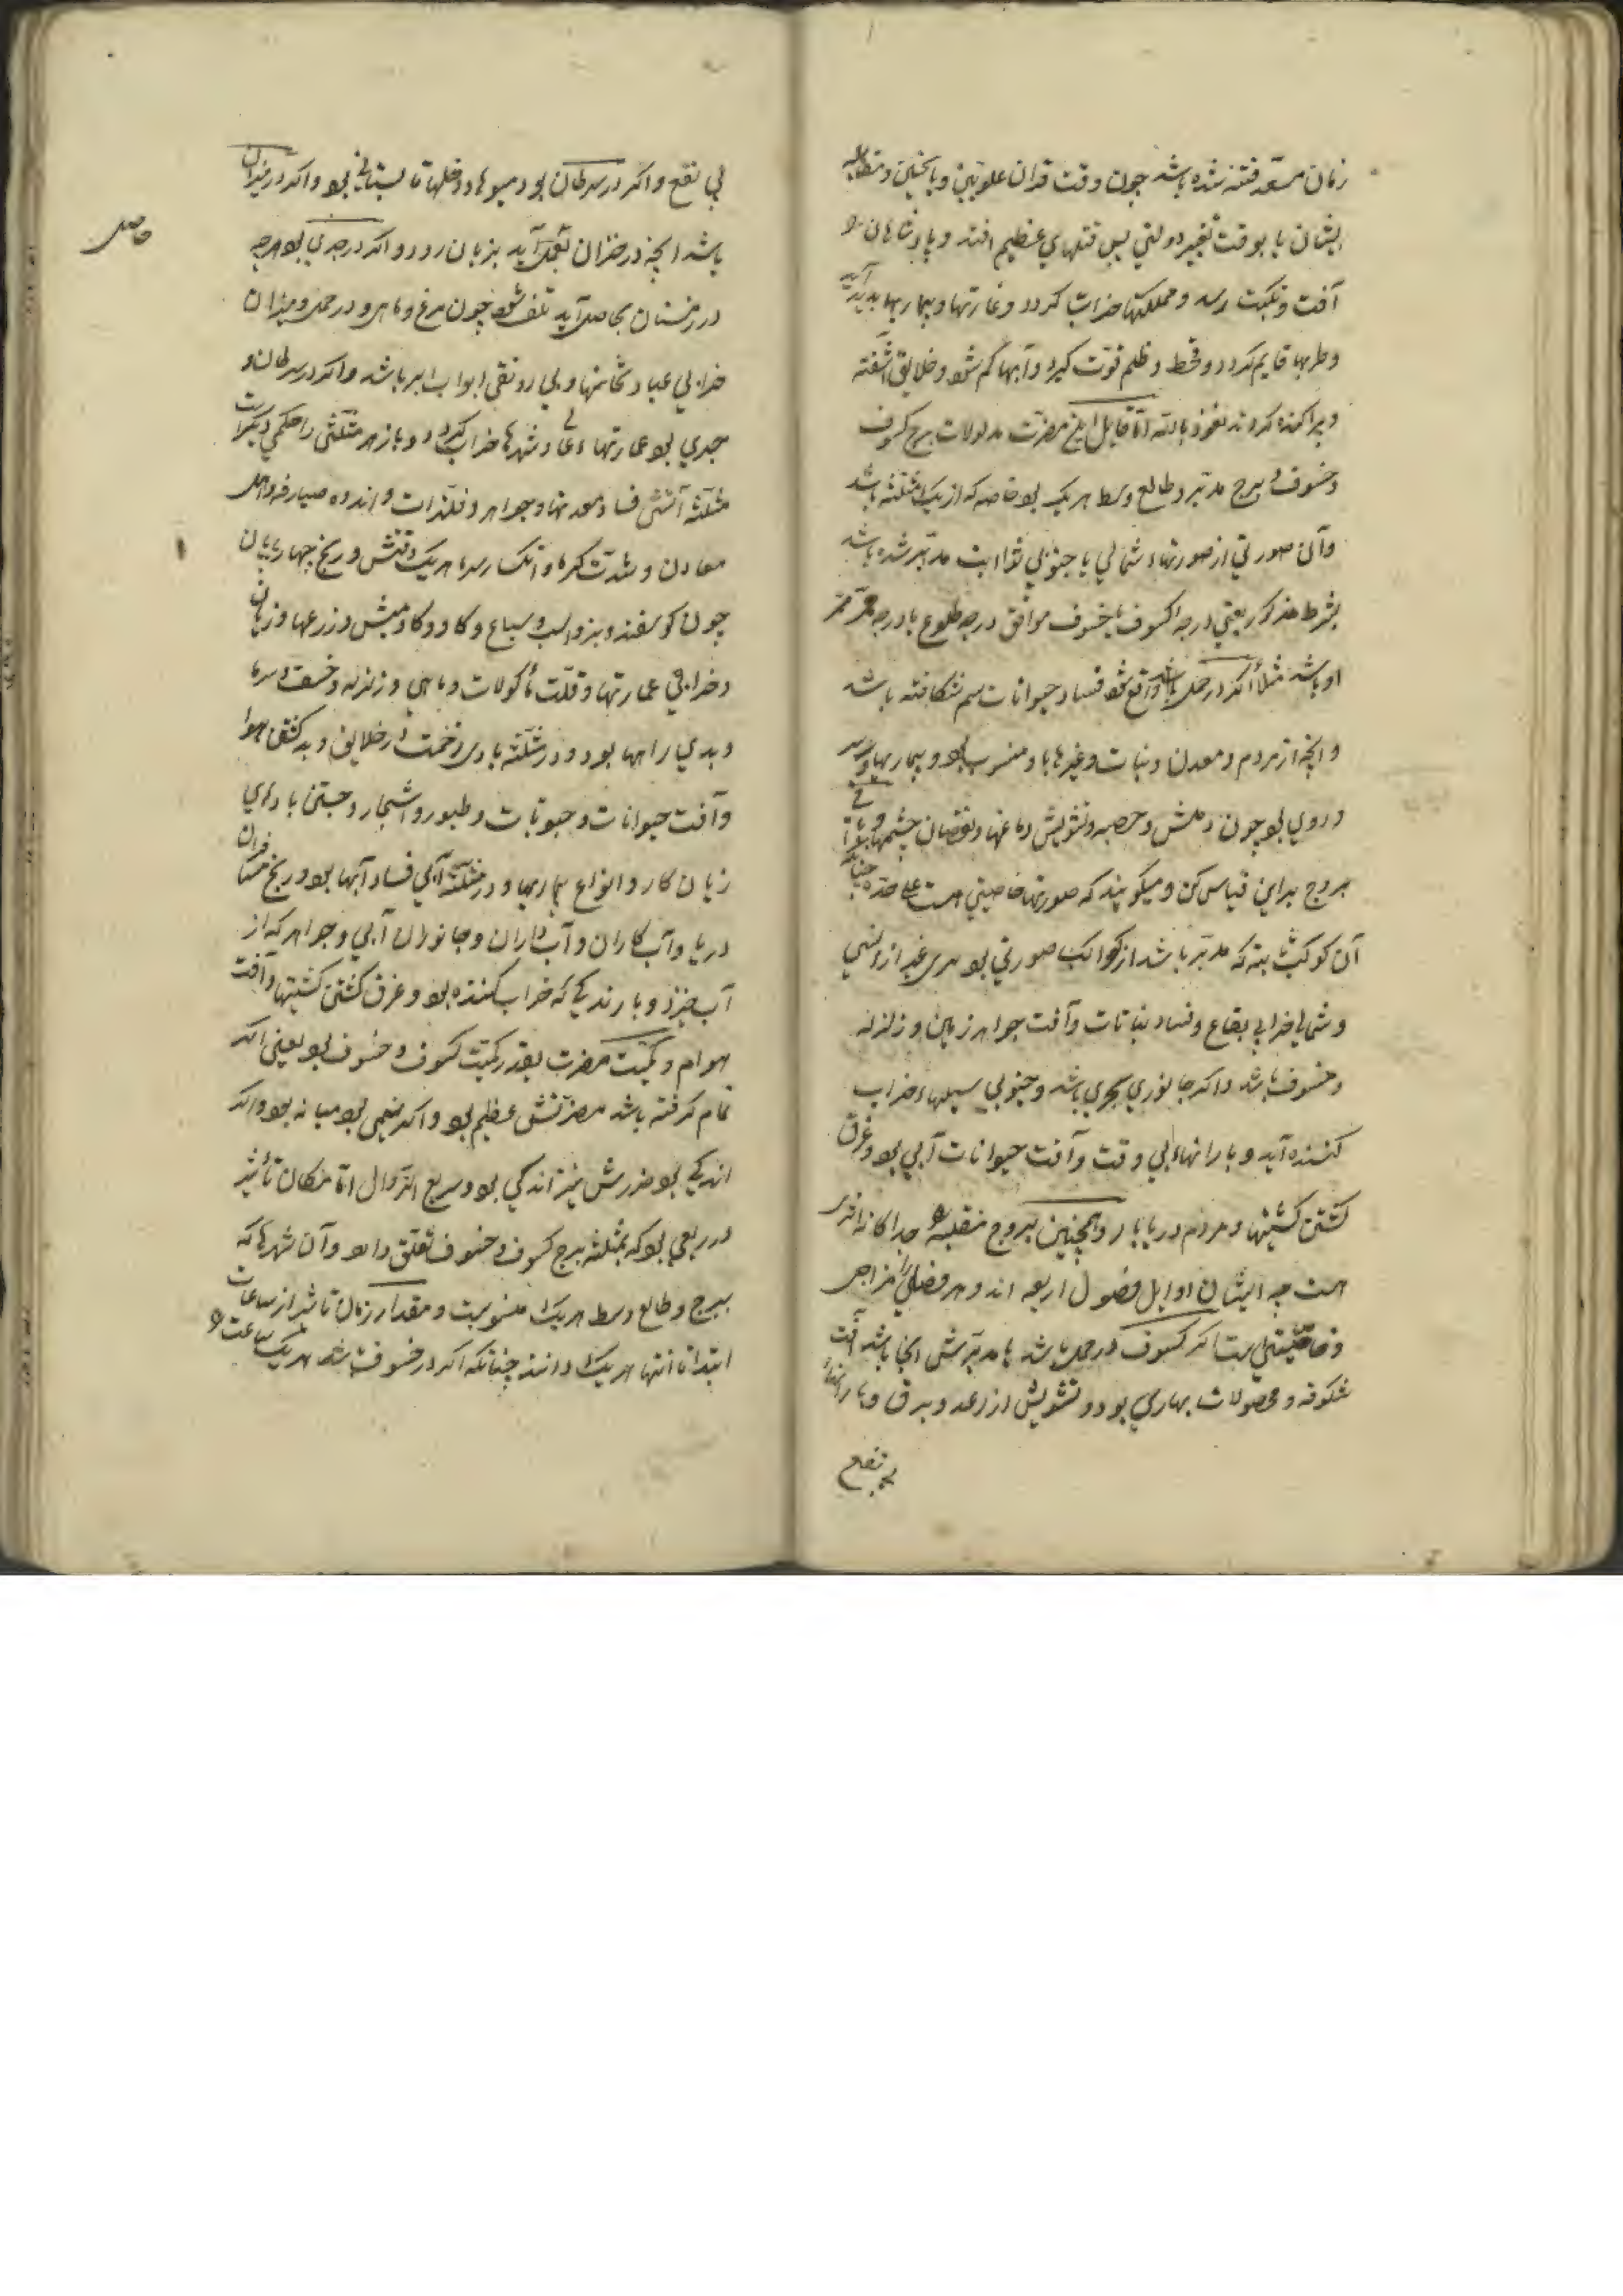 زمان مستعد فتنه شده باشد چون وقت قران علویین و یا نحسین و مقابله
ایشان یا بوقت تغییر دولتی پس فتنهای عظیم افتد و پادشاهان را
آفت و نکبت رسد و مملکتها خراب گردد و غارتها و بیماریها پدید آید
و حربها قایم گردد و قحط و ظلم قوت گیرد و آبها کم شود و خلایق آشفته
و پراکنده گردند نعوذ بالله اما قابل این مضرت مدلولات برج کسوف
و خسوف و برج مدبر و طالع وسط هر یک بود خاصه که از یک مثلثه باشد
و آن صورتی از صورتهاء شمالی یا جنوبی ثوابت مدبر شده باشد
بشرط مذکور یعنی درجه کسوف یا خسوف موافق درجه طلوع یا درجه ممر
او باشد مثلا اگر در حمل باشد واقع شود فساد حیوانات سم شکافته باشد
و آنچه از مردم و معدن و نبات و غیرها باو منسوب بود و بیماریها و سر
و روی بود چون دمش و حصبه و تشویش دماغها و نقصان چشمها و باقی
بروج برین قیاس کن و میگویند که صورتها خاصیتی هست علی حده چنانکه
آن کوکب ثابته که مدبر باشد از کواکب صورتی بود مری غیر از انسی
و شمالی خرابی بقاع و فساد نباتات و آفت جواهر زمین و زلزله
و خسوف باشد و اگر جانوری بحری باشد و جنوبی سیلهاء خراب
کننده آید و بارانهاء بی وقت و آفت حیوانات آبی بود و غرق
گشتن کشتیها و مردم دریابار و همچنین بروج منقلبه را جداگانه اثری
هست چه ایشان اوایل فصول اربعه اند و هر فصلی را مزاجی
و خاصیتی است اگر کسوف در حمل باشد یا مدبرش آنجا باشد آفت
شکوفه و محصولات بهاری بود و تشویش از رعد و برق و بارانهاء
بی نفع
بی نفع و اگر در سرطان بود میوها و دخلها تابستانی بود و اگر در میزان
باشد آنچه در خزان بعمل آید بزیان رود و اگر در جدی بود هر چه
حاصل
در زمستان بحاصل آید تلف شود چون مرغ و ماهی و در حمل و میزان
خرابی عبادتخانها و بی رونقی ابواب البر باشد و اگر در سرطان و
جدی بود عمارتهاء عالی و شهرها خراب گردد و باز هر مثلثی را حکمی دیگر است
مثلثه آتشی فساد معدنها و جواهر و فلزات و اندوه صیارفه و اهل
معادن و شدت گرما و انکسار سرما هر یک وقتش و رنج چهارپایان
چون گوسفند و بز و اسب و سباع و گاو و گاومیش و زرعها و زیان
و خرابی عمارتها و قلت ماکولات و ماهی و زلزله و خسف و سرما
و بدی راهها بود و در مثلثه بادی زحمت در خلایق و بد گشتن هوا
و آفت حیوانات و حبوبات و طیور و اشجار و جستن بادهای
زیان کار و انواع بیماریها و در مثلثه آبی فساد آبها بود و رنج مسافران
دریا و آب کاران و آب داران و جانوران آبی و جواهر که از
آب خیزد و بارندگی که خراب کننده بود و غرق گشتن کشتیها و آفت
هوام و کمیت مضرت بقدر کمیت کسوف و خسوف بود یعنی اگر
تمام گرفته باشد مضرتش عظیم بود و اگر نیمی بود میانه بود و اگر
اندکی بود ضررش نیز اندکی بود و سریع الزوال اما مکان تاثیر
در ربعی بود که بمثلثه برج کسوف و خسوف تعلق دارد و آن شهرها که
ببرج و طالع وسط هر یک منسوبست و مقدار زمان تاثیر از ساعات
ابتدا تا انتها هر یک دانند چنانکه اگر در خسوف باشد هر یک ساعت را